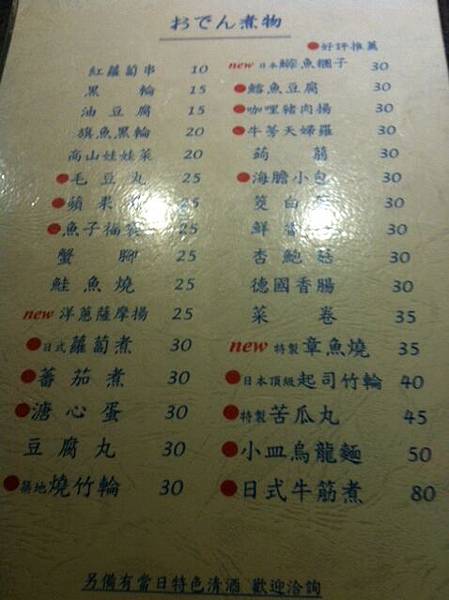 おでん煮物
●好評推薦
紅蘿蔔串 10
黑輪 15
油豆腐 15
旗魚黑輪 20
高山娃娃菜 20
●毛豆丸 25
●蘋果 25
●魚子福袋 25
蟹腳 25
鮭魚燒 25
new 洋蔥薩摩揚 25
●日式蘿蔔煮 30
●蕃茄煮 30
●溏心蛋 30
豆腐丸 30
●築地燒竹輪 30
new 日本鯨魚糰子 30
●鱈魚豆腐 30
●咖哩豬肉揚 30
●牛蒡天婦羅 30
蒟蒻 30
●海膽小包 30
筊白 30
鮮 30
杏鮑菇 30
德國香腸 30
菜卷 35
new 特製章魚燒 35
●日本頂級起司竹輪 40
●特製苦瓜丸 45
●小皿烏龍麵 50
●日式牛筋煮 80
另備有當日特色清酒 歡迎洽詢